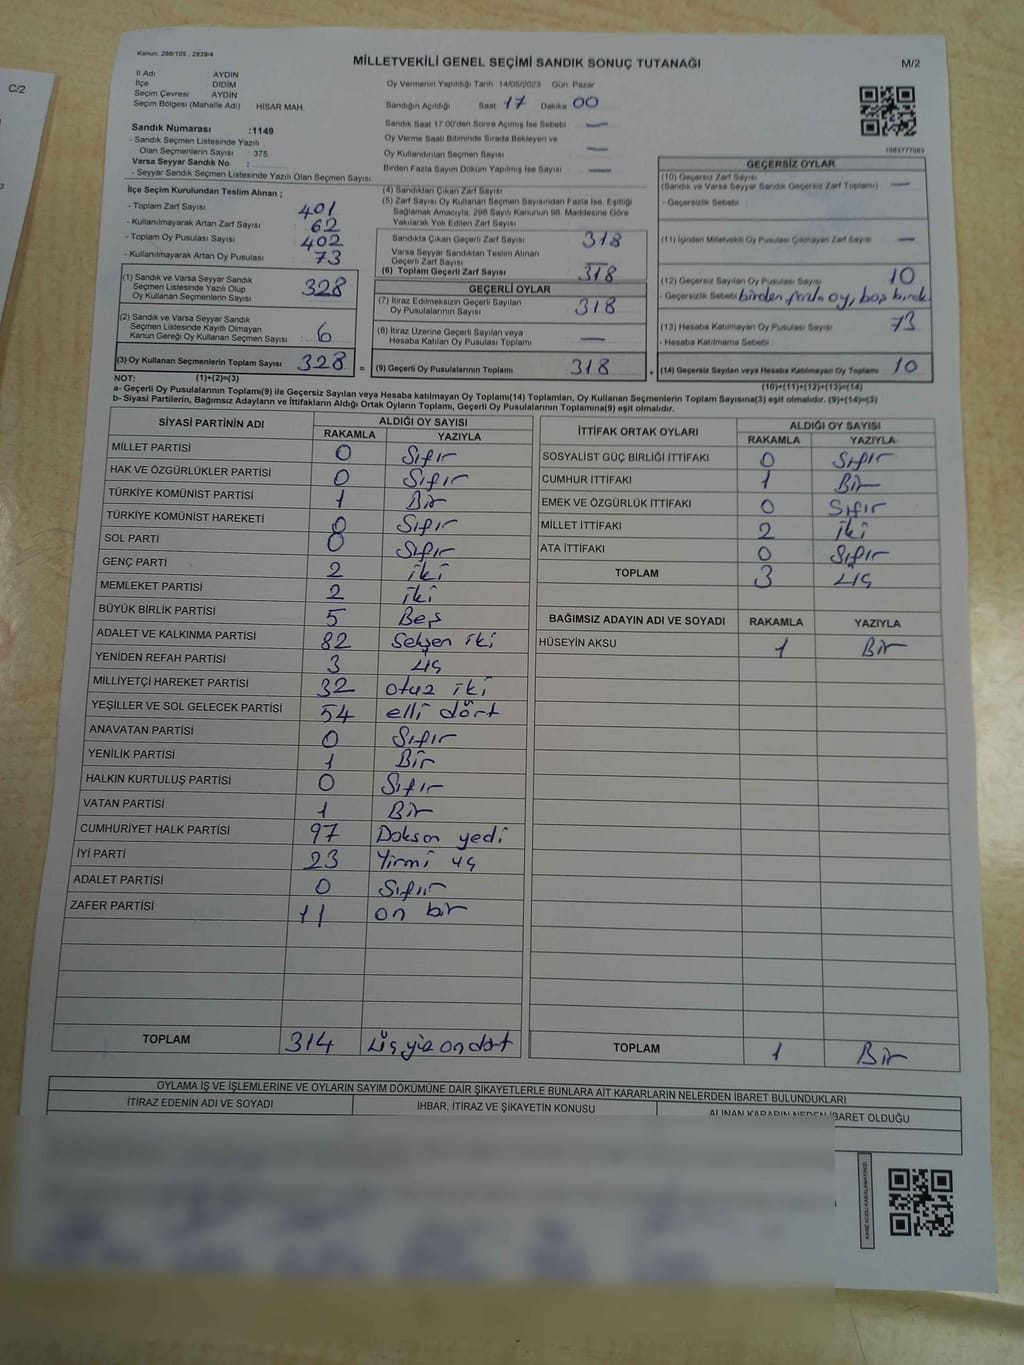 C/2
Kanun: 298/105 , 2839/4
MİLLETVEKİLİ GENEL SEÇİMİ SANDIK SONUÇ TUTANAĞI
M/2
İl Adı : AYDIN
İlçe : DİDİM
Seçim Çevresi : AYDIN
Seçim Bölgesi (Mahalle Adı) HİSAR MAH.
Oy Vermenin Yapıldığı Tarih :14/05/2023 Gün: Pazar
Sandığın Açıldığı Saat 17 Dakika 00
Sandık Saat 17:00'den Sonra Açılmış İse Sebebi : —
Oy Verme Saati Bitiminde Sırada Bekleyen ve
Oy Kullandırılan Seçmen Sayısı : —
Birden Fazla Sayım Döküm Yapılmış İse Sayısı : —
Sandık Numarası :1149
- Sandık Seçmen Listesinde Yazılı
Olan Seçmenlerin Sayısı : 375
Varsa Seyyar Sandık No :
- Seyyar Sandık Seçmen Listesinde Yazılı Olan Seçmen Sayısı:
1063777083
İlçe Seçim Kurulundan Teslim Alınan ;
- Toplam Zarf Sayısı : 401
- Kullanılmayarak Artan Zarf Sayısı : 62
- Toplam Oy Pusulası Sayısı : 402
- Kullanılmayarak Artan Oy Pusulası : 73
(1) Sandık ve Varsa Seyyar Sandık
Seçmen Listesinde Yazılı Olup
Oy Kullanan Seçmenlerin Sayısı : 328
(2) Sandık ve Varsa Seyyar Sandık
Seçmen Listesinde Kayıtlı Olmayan
Kanun Gereği Oy Kullanan Seçmen Sayısı : 6
(3) Oy Kullanan Seçmenlerin Toplam Sayısı : 328 =
(4) Sandıktan Çıkan Zarf Sayısı :
(5) Zarf Sayısı Oy Kullanan Seçmen Sayısından Fazla İse, Eşitliği
Sağlamak Amacıyla, 298 Sayılı Kanunun 98. Maddesine Göre
Yakılarak Yok Edilen Zarf Sayısı :
Sandıkta Çıkan Geçerli Zarf Sayısı : 318
Varsa Seyyar Sandıktan Teslim Alınan
Geçerli Zarf Sayısı : —
(6) Toplam Geçerli Zarf Sayısı : 318
GEÇERLİ OYLAR
(7) İtiraz Edilmeksizin Geçerli Sayılan
Oy Pusulalarının Sayısı : 318
(8) İtiraz Üzerine Geçerli Sayılan veya
Hesaba Katılan Oy Pusulası Toplamı : —
(9) Geçerli Oy Pusulalarının Toplamı : 318 +
GEÇERSİZ OYLAR
(10) Geçersiz Zarf Sayısı
(Sandık ve Varsa Seyyar Sandık Geçersiz Zarf Toplamı) : —
- Geçersizlik Sebebi :
(11) İçinden Milletvekili Oy Pusulası Çıkmayan Zarf Sayısı : —
(12) Geçersiz Sayılan Oy Pusulası Sayısı : 10
- Geçersizlik Sebebi: birden fazla oy, boş
(13) Hesaba Katılmayan Oy Pusulası Sayısı : 73
- Hesaba Katılmama Sebebi :
(14) Geçersiz Sayılan veya Hesaba Katılmayan Oy Toplamı : 10
NOT: (1)+(2)=(3)
(10)+(11)+(12)+(13)=(14)
a- Geçerli Oy Pusulalarının Toplamı(9) ile Geçersiz Sayılan veya Hesaba katılmayan Oy Toplamı(14) Toplamları, Oy Kullanan Seçmenlerin Toplam Sayısına(3) eşit olmalıdır. (9)+(14)=(3)
b- Siyasi Partilerin, Bağımsız Adayların ve İttifakların Aldığı Ortak Oyların Toplamı, Geçerli Oy Pusulalarının Toplamına(9) eşit olmalıdır.
SİYASİ PARTİNİN ADI ALDIĞI OY SAYISI
RAKAMLA YAZIYLA
MİLLET PARTİSİ 0 Sıfır
HAK VE ÖZGÜRLÜKLER PARTİSİ 0 Sıfır
TÜRKİYE KOMÜNİST PARTİSİ 1 Bir
TÜRKİYE KOMÜNİST HAREKETİ 0 Sıfır
SOL PARTİ 0 Sıfır
GENÇ PARTİ 2 iki
MEMLEKET PARTİSİ 2 iki
BÜYÜK BİRLİK PARTİSİ 5 Beş
ADALET VE KALKINMA PARTİSİ 82 Seksen iki
YENİDEN REFAH PARTİSİ 3 üç
MİLLİYETÇİ HAREKET PARTİSİ 32 otuz iki
YEŞİLLER VE SOL GELECEK PARTİSİ 54 elli dört
ANAVATAN PARTİSİ 0 Sıfır
YENİLİK PARTİSİ 1 Bir
HALKIN KURTULUŞ PARTİSİ 0 Sıfır
VATAN PARTİSİ 1 Bir
CUMHURİYET HALK PARTİSİ 97 Doksan yedi
İYİ PARTİ 23 Yirmi üç
ADALET PARTİSİ 0 Sıfır
ZAFER PARTİSİ 11 on bir
TOPLAM 314 Üç yüz on dört
İTTİFAK ORTAK OYLARI ALDIĞI OY SAYISI
RAKAMLA YAZIYLA
SOSYALİST GÜÇ BİRLİĞİ İTTİFAKI 0 Sıfır
CUMHUR İTTİFAKI 1 Bir
EMEK VE ÖZGÜRLÜK İTTİFAKI 0 Sıfır
MİLLET İTTİFAKI 2 iki
ATA İTTİFAKI 0 Sıfır
TOPLAM 3 üç
BAĞIMSIZ ADAYIN ADI VE SOYADI RAKAMLA YAZIYLA
HÜSEYİN AKSU 1 Bir
TOPLAM 1 Bir
OYLAMA İŞ VE İŞLEMLERİNE VE OYLARIN SAYIM DÖKÜMÜNE DAİR ŞİKAYETLERLE BUNLARA AİT KARARLARIN NELERDEN İBARET BULUNDUKLARI
İTİRAZ EDENİN ADI VE SOYADI İHBAR, İTİRAZ VE ŞİKAYETİN KONUSU ALINAN KARARIN NEDEN İBARET OLDUĞU
KARE KODU KARALAMAYINIZ!